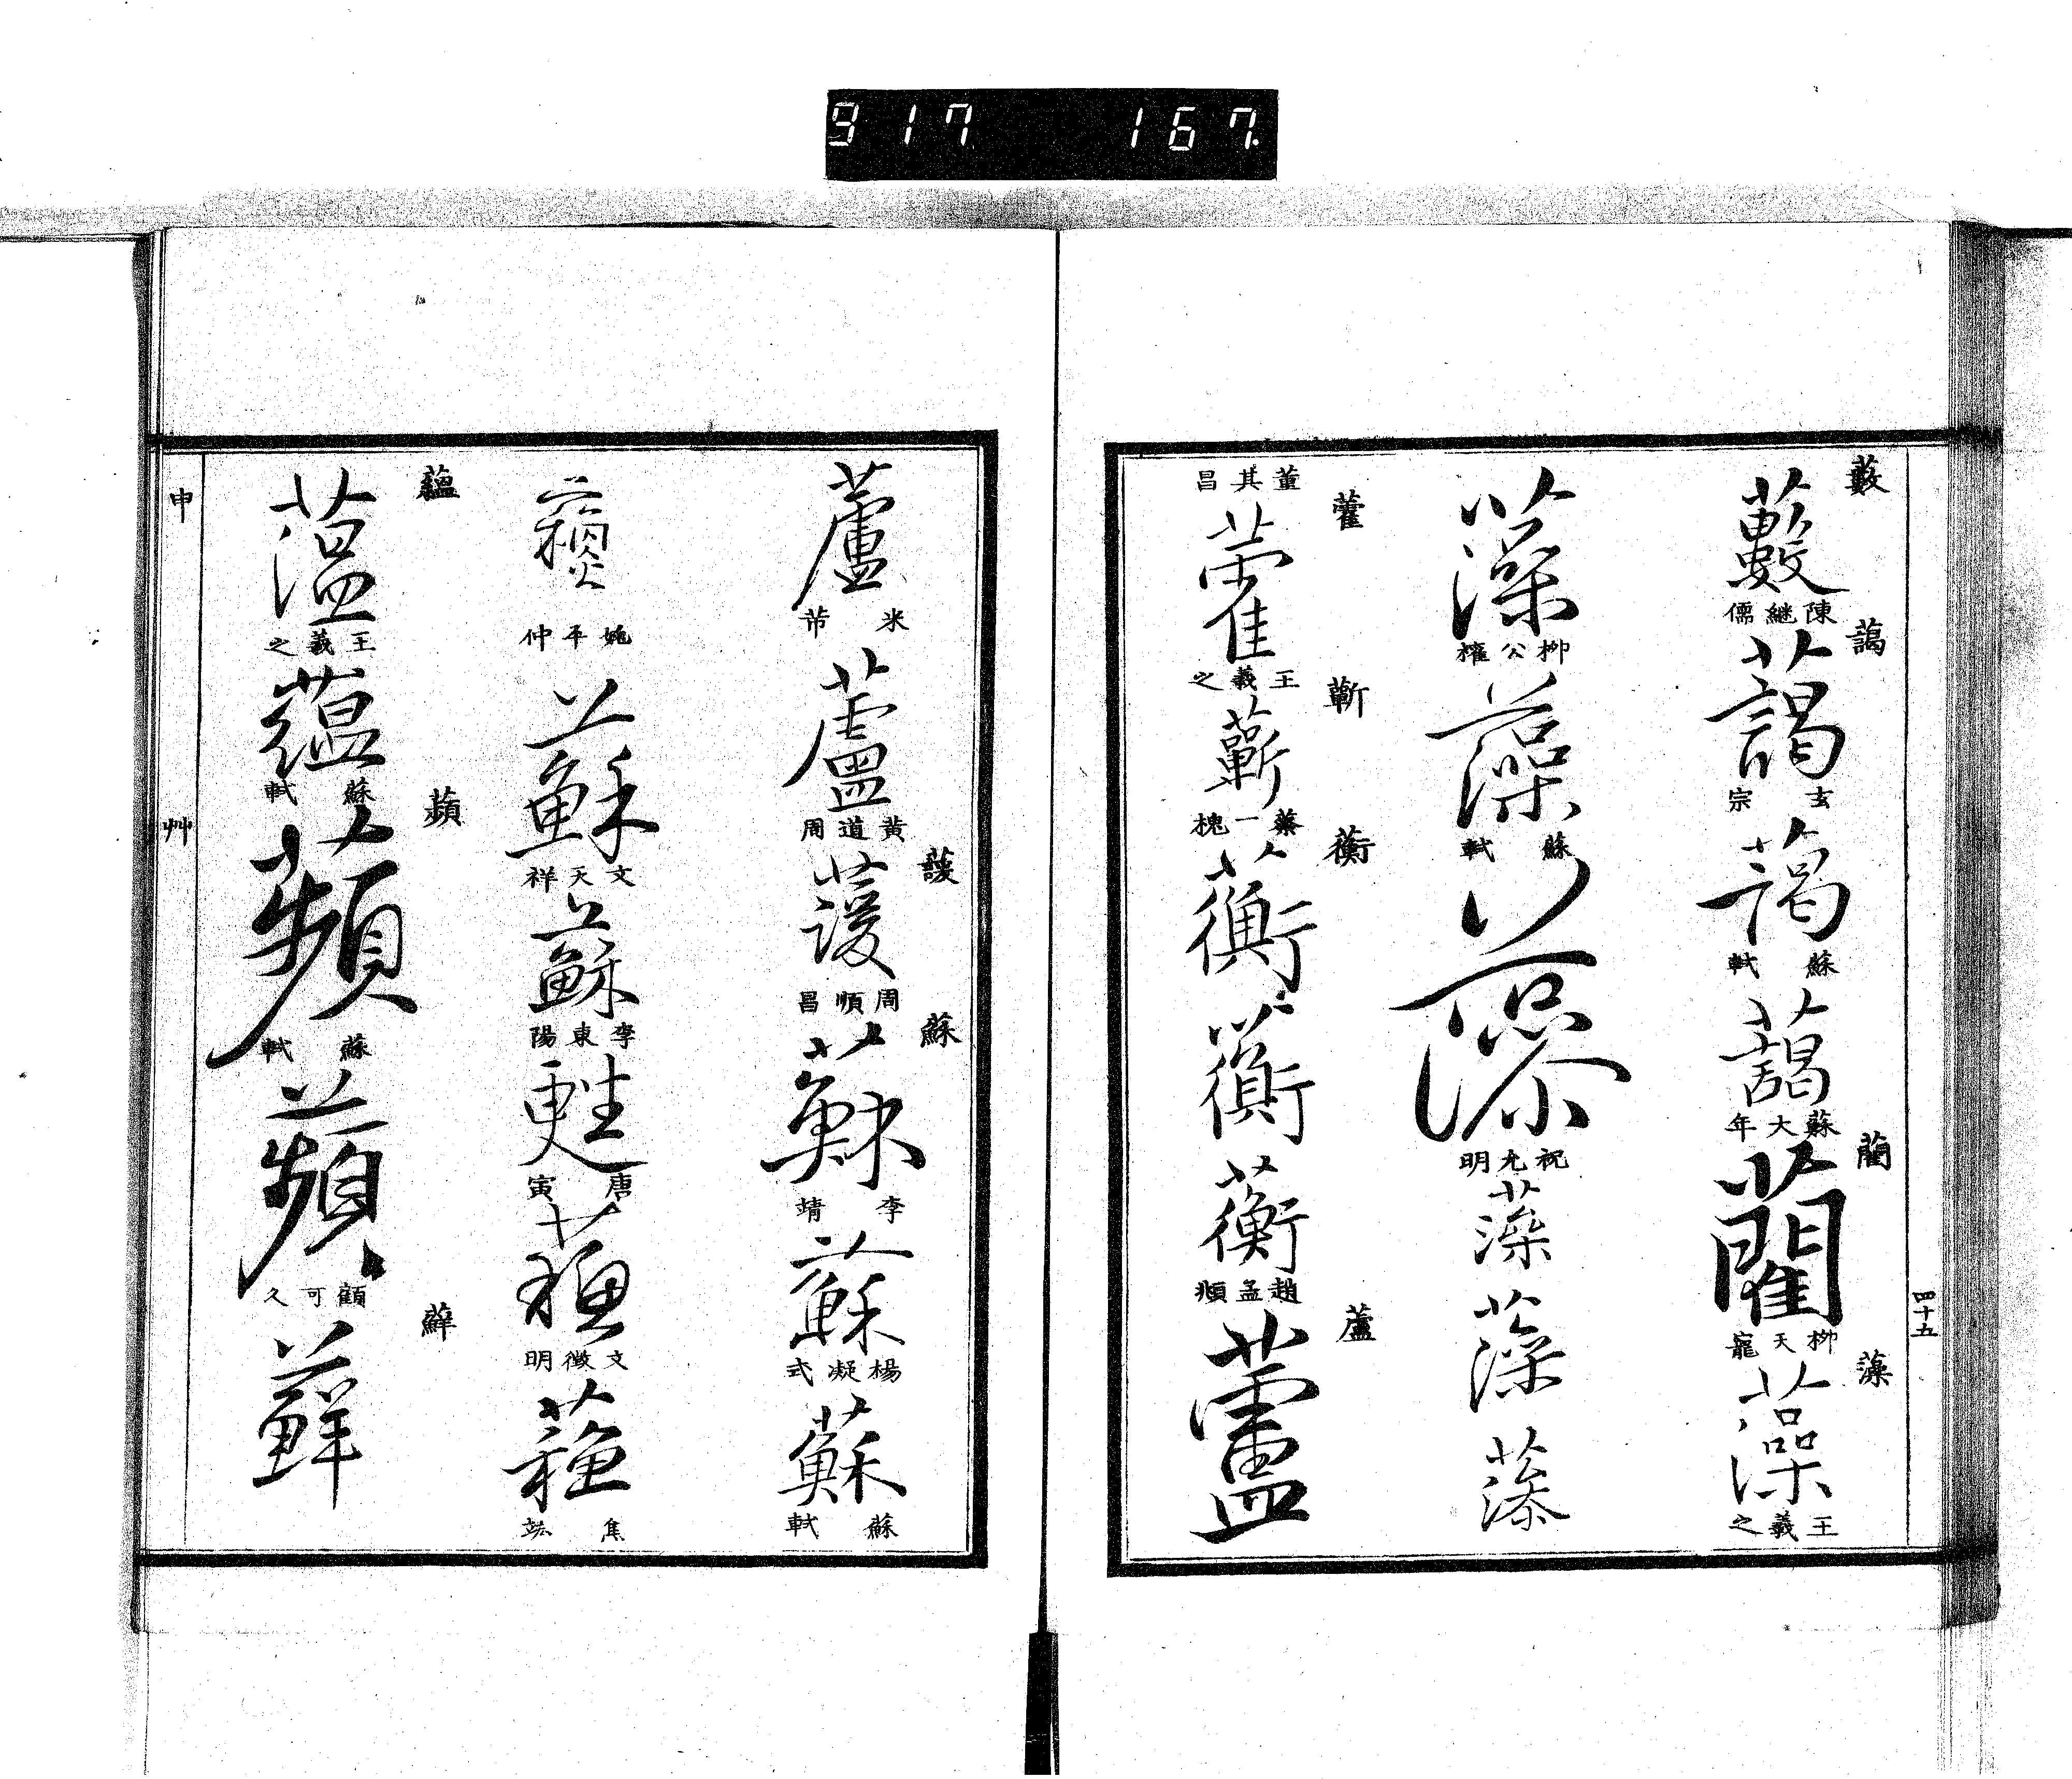 917 167.
四十五
藪
藪
陳繼儒
藹
藹
玄宗
藹
蘇軾
藹
蘇大年
藺
藺
柳天寵
藻
藻
王羲之
藻
柳公權
藻
蘇軾
藻
祝允明
藻
藻
藻
董其昌
藿
藿
王羲之
蘄
蘄
蔡一槐
蘅
蘅
蘅
蘅
趙孟頫
蘆
蘆
蘆
米芾
蘆
黃道周
護
周順昌
蘇
蘇
李靖
蘇
楊凝式
蘇
蘇軾
姚平仲
蘇
文天祥
蘇
李東陽
甦
唐寅
蘓
文徵明
蘓
焦竑
蘊
薀
王羲之
蘊
蘇軾
蘋
蘋
蘇軾
蘋
顧可久
蘚
申
艸